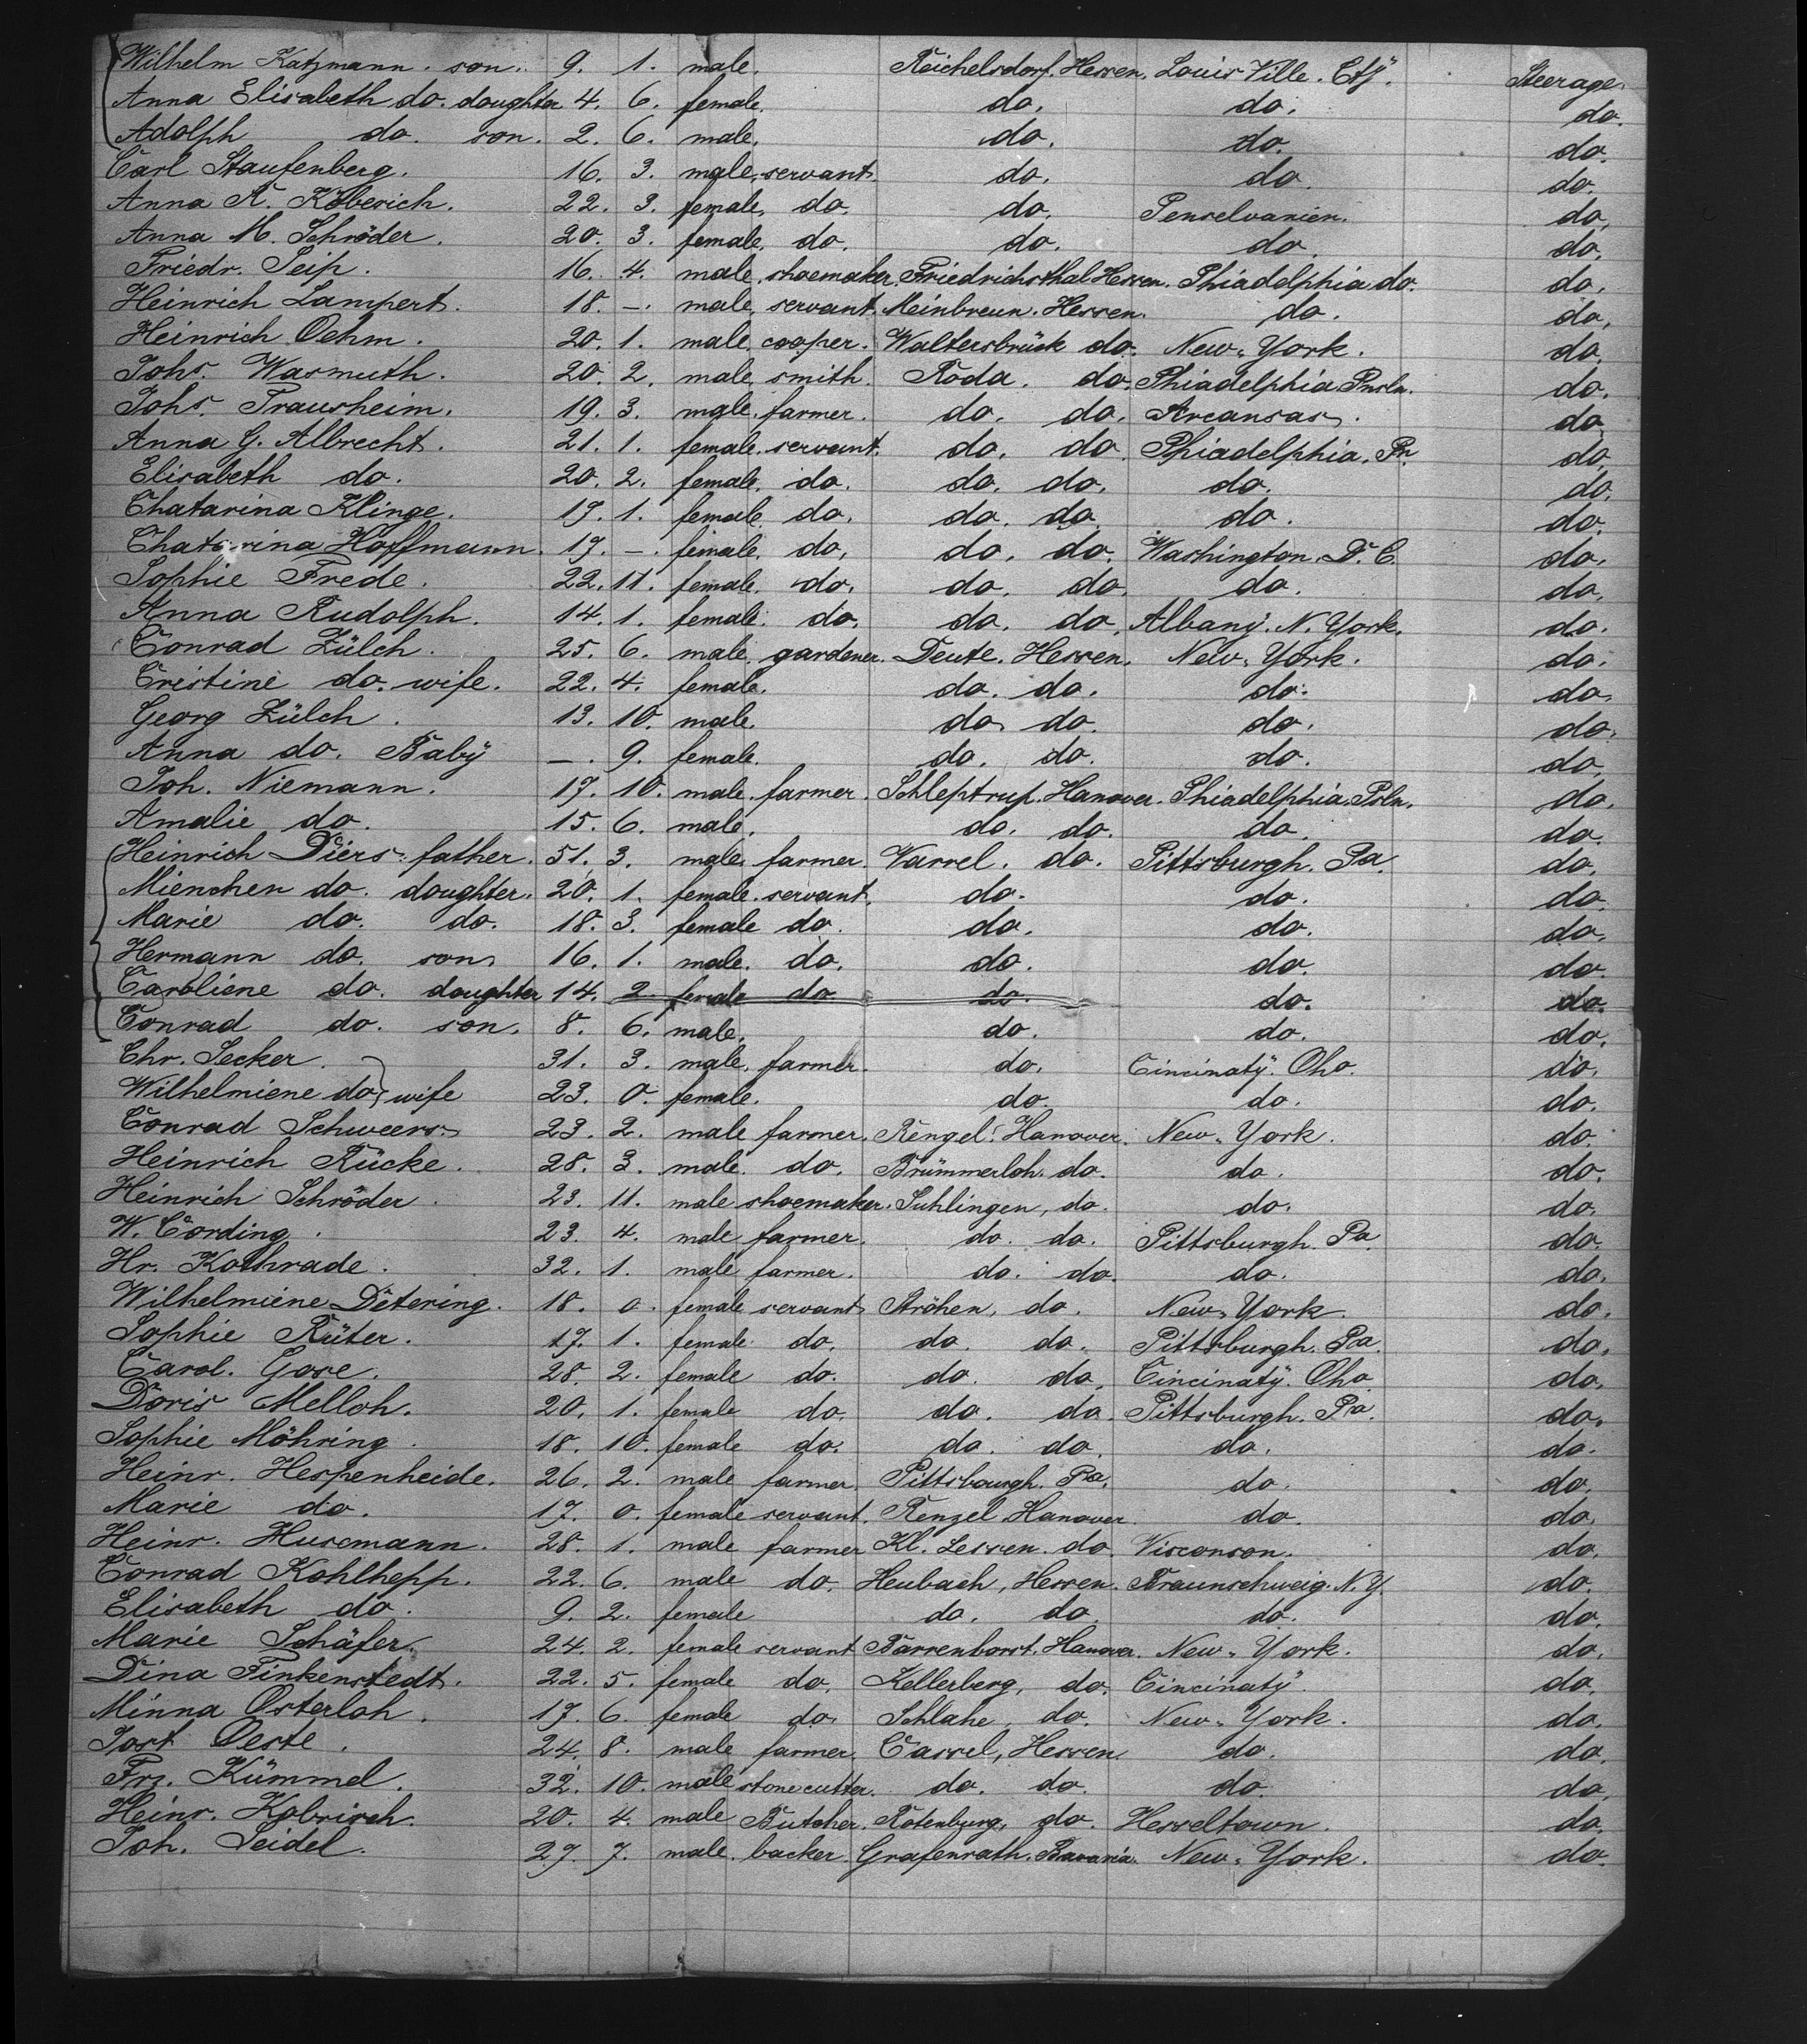 Wilhelm Katzmann. son. 9. 1. male. Reichelsdorf. Hessen. Louis Ville. Ctÿ. Steerage.
Anna Elisabeth do. doughter 4. 6. female. do. do. do.
Adolph do. son. 2. 6. male. do. do. do.
Carl Staufenberg. 16. 3. male. servant. do. do. do.
Anna K. Köberich. 22. 3. female. do. do. Penselvanien. do.
Anna M. Schröder. 20. 3. female. do. do. do. do.
Friedr. Seip. 16. 4. male. shoemaker. Friedrichsthal Hessen. Phiadelphia do. do.
Heinrich Lampert. 18. –. male. servant. Meinbreun. Hessen. do. do.
Heinrich Oehm. 20. 1. male. cooper. Waltersbrück do. New-York. do.
Johs. Wasmuth. 20. 2. male. smith. Roda. do. Phiadelphia Pnsln. do.
Johs. Trausheim. 19. 3. male. farmer. do. do. Arcansas. do.
Anna G. Albrecht. 21. 1. female. servant. do. do. Phiadelphia. Pn. do.
Elisabeth do. 20. 2. female. do. do. do. do. do.
Chatarina Klinge. 19. 1. female. do. do. do. do. do.
Chatarina Hoffmann. 17. –. female. do. do. do. Washington. D. C. do.
Sophie Frede. 22. 11. female. do. do. do. do. do.
Anna Rudolph. 14. 1. female. do. do. do. Albanÿ. N. York. do.
Conrad Zülch. 25. 6. male. gardener. Deute. Hessen. New-York. do.
Cristine do. wife. 22. 4. female. do. do. do. do.
Georg Zülch. 13. 10. male. do. do. do. do.
Anna do. Babÿ –. 9. female. do. do. do. do.
Joh. Niemann. 17. 10. male. farmer. Schleptrup. Hanover. Phiadelphia. Psln. do.
Amalie do. 15. 6. male. do. do. do. do.
Heinrich Diers. father. 51. 3. male. farmer. Varrel. do. Pittsburgh. Pa. do.
Mienchen do. doughter. 20. 1. female. servant. do. do. do.
Marie do. do. 18. 3. female do. do. do. do.
Hermann do. son 16. 1. male. do. do. do. do.
Caroliene do. doughter 14. 2. female do. do. do. do.
Conrad do. son. 8. 6. male. do. do. do.
Chr. Secker. 31. 3. male. farmer. do. Cincinatÿ. Oho. do.
Wilhelmiene do. wife 23. 0. female. do. do. do.
Conrad Schweers. 23. 2. male farmer. Renzel. Hanover. New-York. do.
Heinrich Rücke. 28. 3. male. do. Brümmerloh. do. do. do.
Heinrich Schröder. 23. 11. male shoemaker. Suhlingen, do. do. do.
W. Cording. 23. 4. male farmer. do. do. Pittsburgh. Pa. do.
Hr. Kothrade. 32. 1. male farmer. do. do. do. do.
Wilhelmiene Detering. 18. 0. female servant Ströhen, do. New-York. do.
Sophie Rüter. 17. 1. female do. do. do. Pittsburgh. Pa. do.
Carol. Gose. 28. 2. female do. do. do. Cincinatÿ. Oho. do.
Doris Melloh. 20. 1. female do. do. do. Pittsburgh. Pa. do.
Sophie Möhring. 18. 10. female do. do. do. do. do.
Heinr. Hespenheide. 26. 2. male farmer. Pittsbourgh. Pa. do. do.
Marie do. 17. 0. female servant. Renzel Hanover. do. do.
Heinr. Husemann. 28. 1. male farmer Kl. Lessen. do. Visconson. do.
Conrad Kohlhepp. 22. 6. male do. Heubach, Hessen. Braunschweig. N. Y. do.
Elisabeth do. 9. 2. female do. do. do. do.
Marie Schäfer. 24. 2. female servant Barrenborst. Hanover. New-York. do.
Dina Finkenstedt. 22. 5. female do. Kellerberg, do. Cincinatÿ. do.
Minna Osterloh. 17. 6. female do. Schlahe, do. New-York. do.
Jost Oeste. 24. 8. male farmer. Cassel, Hessen do. do.
Frz. Kümmel. 32. 10. male stonecutter. do. do. do. do.
Heinr. Kobrisch. 20. 4. male Butcher. Rotenburg, do. Hesseltown. do.
Joh. Seidel. 27. 7. male. backer. Grafenrath. Bavaria. New-York. do.